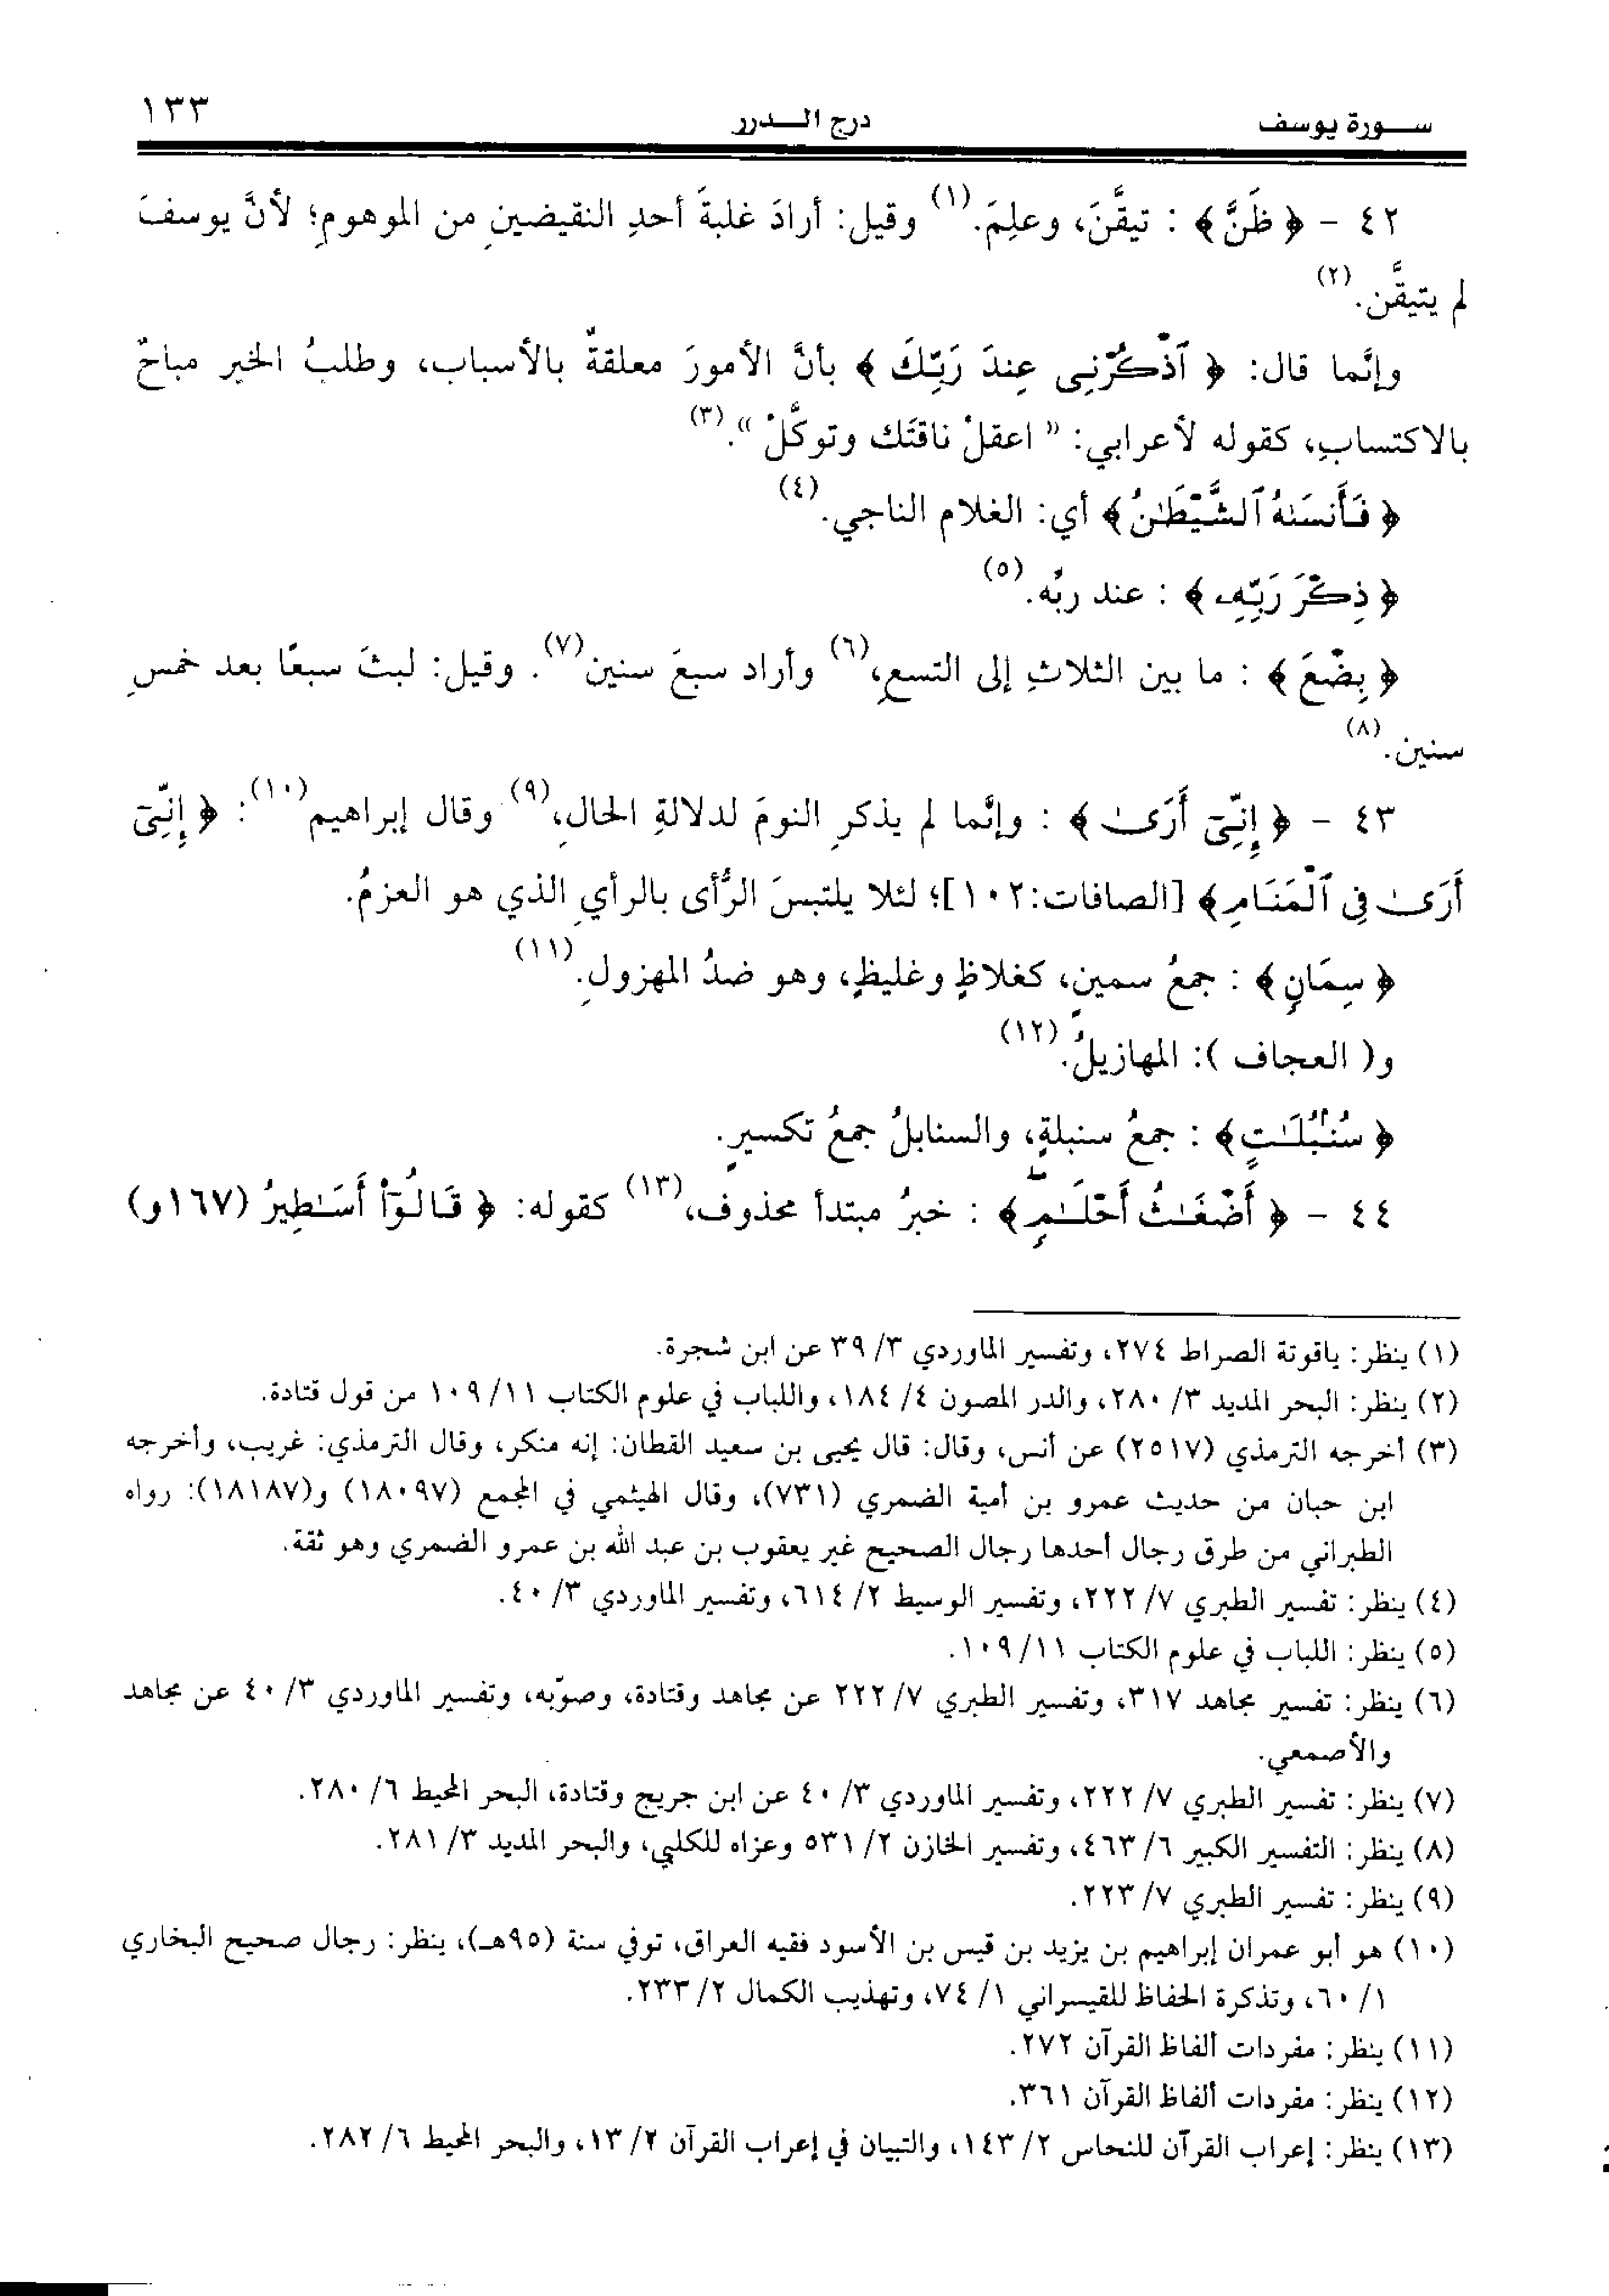 سورة يوسف درج الدرر ١٣٣
٤٢ - ﴿ ظَنَّ ﴾ : تيقَّنَ، وعلِمَ.(١) وقيل: أرادَ غلبةَ أحدِ النقيضينِ من الموهومِ؛ لأنَّ يوسفَ
لم يتيقَّن.(٢)
وإنَّما قال: ﴿ ٱذْكُرْنِى عِندَ رَبِّكَ ﴾ بأنَّ الأمورَ معلقةٌ بالأسباب، وطلبُ الخيرِ مباحٌ
بالاكتسابِ، كقوله لأعرابي: « اعقلْ ناقتَك وتوكَّلْ ».(٣)
﴿ فَأَنسَىٰهُ ٱلشَّيْطَٰنُ ﴾ أي: الغلام الناجي.(٤)
﴿ ذِكْرَ رَبِّهِۦ ﴾ : عند ربِّه.(٥)
﴿ بِضْعَ ﴾ : ما بين الثلاثِ إلى التسعِ،(٦) وأراد سبعَ سنين(٧). وقيل: لبثَ سبعًا بعد خمسِ
سنين.(٨)
٤٣ - ﴿ إِنِّىٓ أَرَىٰ ﴾ : وإنَّما لم يذكرِ النومَ لدلالةِ الحالِ،(٩) وقال إبراهيم(١٠): ﴿ إِنِّىٓ
أَرَىٰ فِى ٱلْمَنَامِ ﴾ [الصافات:١٠٢]؛ لئلا يلتبسَ الرُّأى بالرأيِ الذي هو العزمُ.
﴿ سِمَانٍ ﴾ : جمعُ سمينٍ، كغلاظٍ وغليظٍ، وهو ضدُّ المهزولِ.(١١)
و( العجاف ): المهازيلُ.(١٢)
﴿ سُنۢبُلَٰتٍ ﴾ : جمعُ سنبلةٍ، والسنابلُ جمعُ تكسيرٍ.
٤٤ - ﴿ أَضْغَٰثُ أَحْلَٰمٍ ﴾ : خبرُ مبتدأ محذوف،(١٣) كقوله: ﴿ قَالُوٓا۟ أَسَٰطِيرُ (١٦٧و)
(١) ينظر: ياقوتة الصراط ٢٧٤، وتفسير الماوردي ٣/ ٣٩ عن ابن شجرة.
(٢) ينظر: البحر المديد ٣/ ٢٨٠، والدر المصون ٤/ ١٨٤، واللباب في علوم الكتاب ١١/ ١٠٩ من قول قتادة.
(٣) أخرجه الترمذي (٢٥١٧) عن أنس، وقال: قال يحيى بن سعيد القطان: إنه منكر، وقال الترمذي: غريب، وأخرجه
ابن حبان من حديث عمرو بن أمية الضمري (٧٣١)، وقال الهيثمي في المجمع (١٨٠٩٧) و(١٨١٨٧): رواه
الطبراني من طرق رجال أحدها رجال الصحيح غير يعقوب بن عبد الله بن عمرو الضمري وهو ثقة.
(٤) ينظر: تفسير الطبري ٧/ ٢٢٢، وتفسير الوسيط ٢/ ٦١٤، وتفسير الماوردي ٣/ ٤٠.
(٥) ينظر: اللباب في علوم الكتاب ١١/ ١٠٩.
(٦) ينظر: تفسير مجاهد ٣١٧، وتفسير الطبري ٧/ ٢٢٢ عن مجاهد وقتادة، وصوّبه، وتفسير الماوردي ٣/ ٤٠ عن مجاهد
والأصمعي.
(٧) ينظر: تفسير الطبري ٧/ ٢٢٢، وتفسير الماوردي ٣/ ٤٠ عن ابن جريج وقتادة، البحر المحيط ٦/ ٢٨٠.
(٨) ينظر: التفسير الكبير ٦/ ٤٦٣، وتفسير الخازن ٢/ ٥٣١ وعزاه للكلبي، والبحر المديد ٣/ ٢٨١.
(٩) ينظر: تفسير الطبري ٧/ ٢٢٣.
(١٠) هو أبو عمران إبراهيم بن يزيد بن قيس بن الأسود فقيه العراق، توفي سنة (٩٥هـ)، ينظر: رجال صحيح البخاري
١/ ٦٠، وتذكرة الحفاظ للقيسراني ١/ ٧٤، وتهذيب الكمال ٢/ ٢٣٣.
(١١) ينظر: مفردات ألفاظ القرآن ٢٧٢.
(١٢) ينظر: مفردات ألفاظ القرآن ٣٦١.
(١٣) ينظر: إعراب القرآن للنحاس ٢/ ١٤٣، والتبيان في إعراب القرآن ٢/ ١٣، والبحر المحيط ٦/ ٢٨٢.